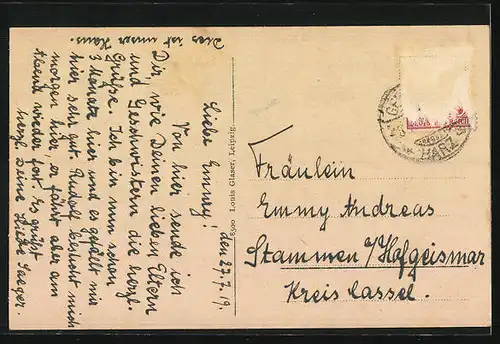 Dies ist unser Haus.
den 27.7.19.
Liebe Emmy!
Von hier sende ich
Dir, wie Deinen lieben Eltern
und Geschwistern die herzl.
Grüße. Ich bin nun schon
3 Monate hier und es gefällt mir
hier sehr gut. Rudolf besucht mich
morgen hier, er fährt aber am
Abend wieder fort. Es grüßt
herzl. Deine Jaeger.
Louis Glaser, Leipzig.
HARZ
Fräulein
Emmy Andreas
Stammen b/Hofgeismar
Kreis Cassel.